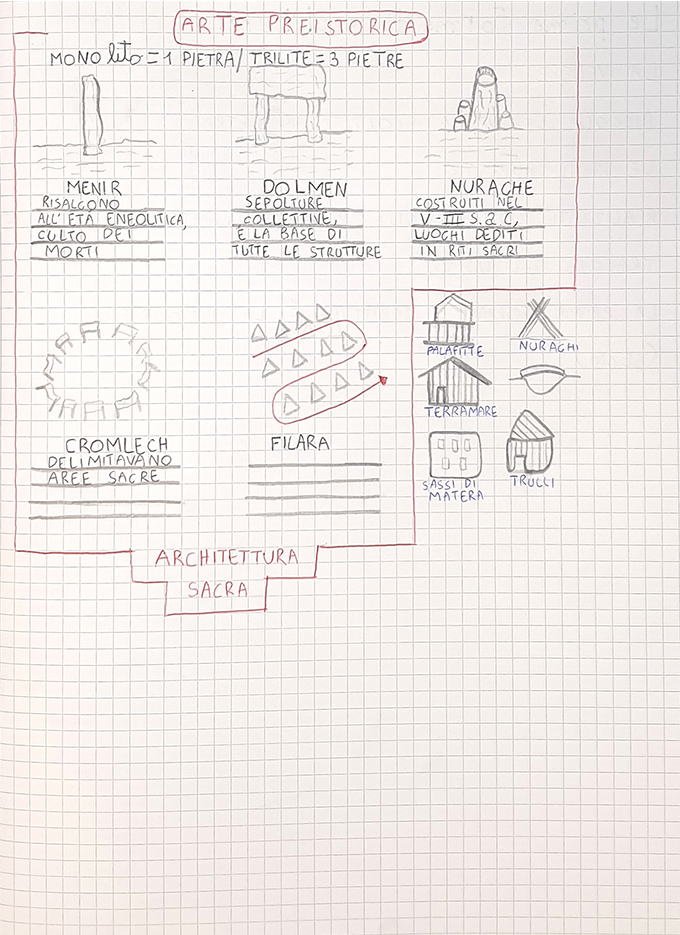 ARTE PREISTORICA
MONOlito = 1 PIETRA / TRILITE = 3 PIETRE
MENIR
RISALGONO
ALL'ETÀ ENEOLITICA,
CULTO DEI
MORTI
DOLMEN
SEPOLTURE
COLLETTIVE,
È LA BASE DI
TUTTE LE STRUTTURE
NURACHE
COSTRUITI NEL
V-III S.a.C,
LUOGHI DEDITI
IN RITI SACRI
CROMLECH
DELIMITAVANO
AREE SACRE
FILARA
PALAFITTE
NURAGHI
TERRAMARE
SASSI DI
MATERA
TRULLI
ARCHITETTURA
SACRA